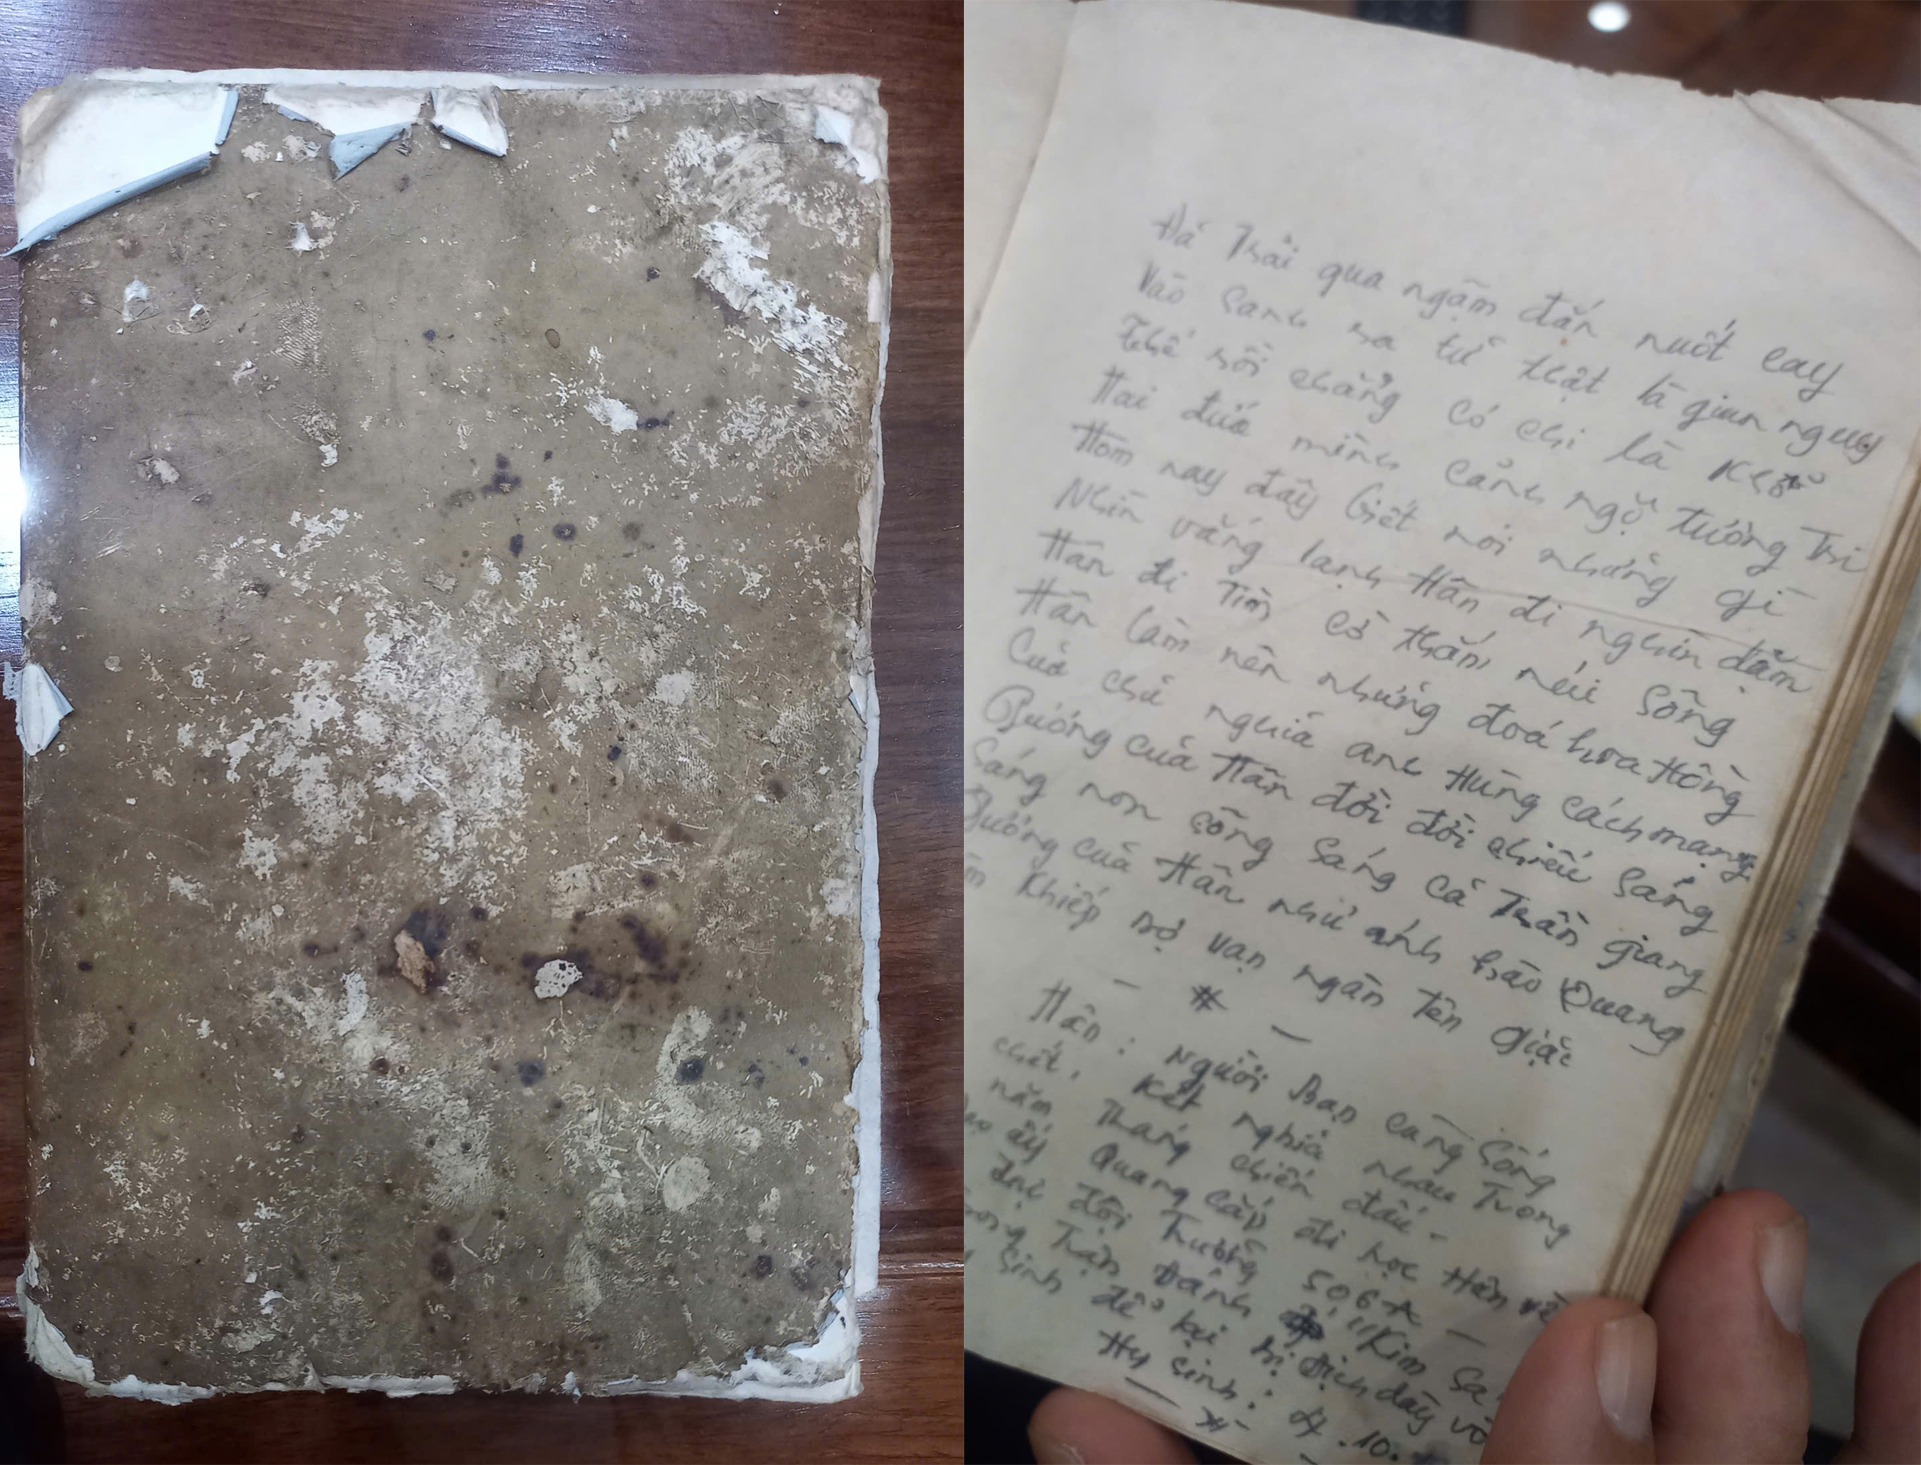 Đã Trải qua ngậm đắn nuốt cay
Vào sanh ra tử thật là gian nguy
Thế rồi chẳng có chi là Khổ
Hai đứa mình cảnh ngộ tương Tri
Hôm nay đây biết nói những gì
Nhìn vầng lạnh Hân đi nghìn dặm
Hân đi Tìm cờ thắm núi Sông
Hân làm nên những đoá hoa Hồng
Của chủ nghĩa anh Hùng cách mạng
Gương của Hân đời đời chiếu sáng
Sáng non sông Sáng cả Trần giang
Gương của Hân như ánh hào Quang
Khiếp sợ vạn ngàn tên giặc
— * —
Hân: Người Bạn cùng Sống
chết, Kết nghĩa nhau Trong
năm Tháng chiến đấu -
ấy Quang cấp đi học Hân về
đại đội Trưởng 506A —
Trận Đánh "Kim
Sinh để lại địch dầy
Hy Sinh: 4.10.
— * —